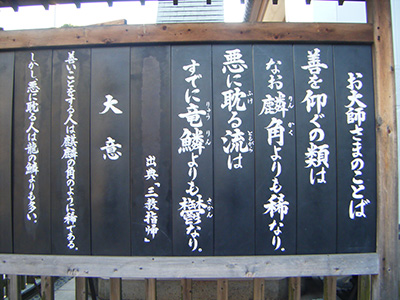 お大師さまのことば
善を仰ぐの類は
なお麟角よりも稀なり。
悪に耽る流は
すでに竜鱗よりも欝なり。
出典「三教指帰」
大意
善いことをする人は麒麟の角のように稀である。
しかし、悪に耽る人は龍の鱗よりも多い。